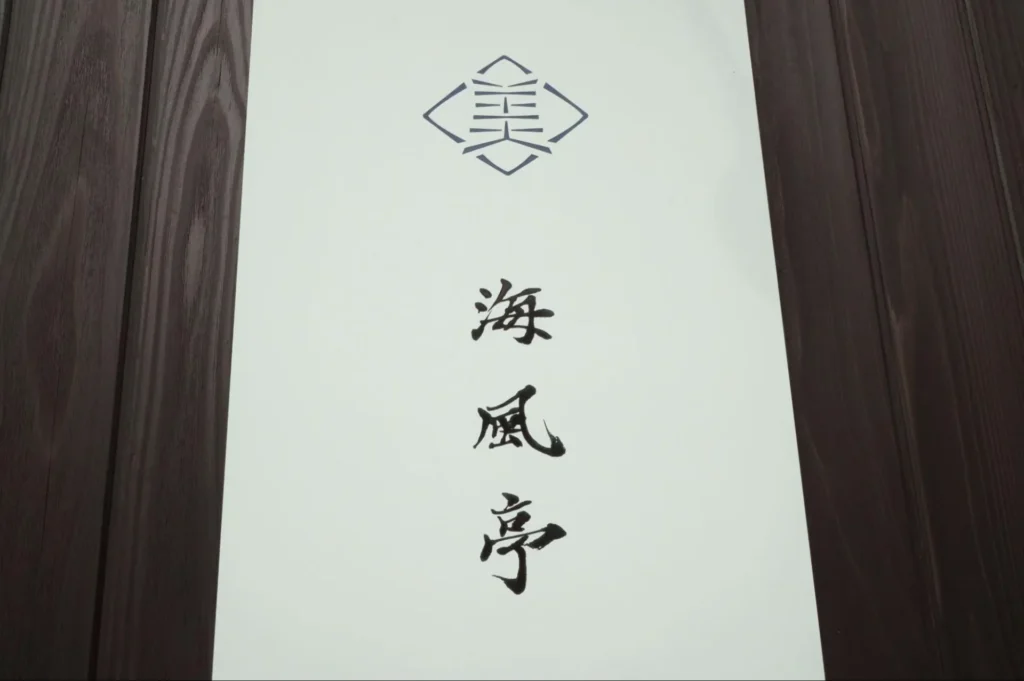 美
海風亭